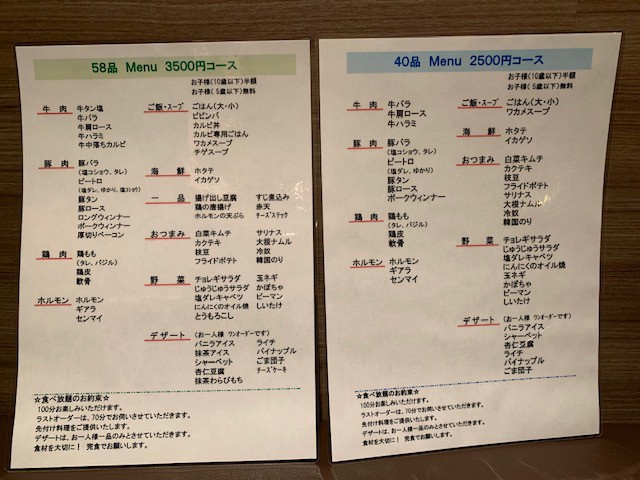 58品 Menu 3500円コース
お子様(10歳以下)半額
お子様(5歳以下)無料
牛 肉
牛タン塩
牛バラ
牛肩ロース
牛ハラミ
牛中落ちカルビ
豚 肉
豚バラ
(塩コショウ、タレ)
ピートロ
(塩ダレ、ゆかり、塩コショウ)
豚タン
豚ロース
ロングウィンナー
ポークウィンナー
厚切りベーコン
鶏 肉
鶏もも
(タレ、バジル)
鶏皮
軟骨
ホルモン
ホルモン
ギアラ
センマイ
ご飯・スープ
ごはん(大・小)
ビビンバ
カルビ丼
カルビ専用ごはん
ワカメスープ
チゲスープ
海 鮮
ホタテ
イカゲソ
一 品
揚げ出し豆腐 すじ煮込み
鶏の唐揚げ 赤天
ホルモンの天ぷら チーズスティック
おつまみ
白菜キムチ サリナス
カクテキ 大根ナムル
枝豆 冷奴
フライドポテト 韓国のり
野 菜
チョレギサラダ 玉ネギ
じゅうじゅうサラダ かぼちゃ
塩ダレキャベツ ピーマン
にんにくのオイル焼 しいたけ
とうもろこし
デザート
(お一人様 ワンオーダーです)
バニラアイス ライチ
抹茶アイス パイナップル
シャーベット ごま団子
杏仁豆腐 チーズケーキ
抹茶わらびもち
☆食べ放題のお約束☆
100分お楽しみいただけます。
ラストオーダーは、70分でお伺いさせていただきます。
先付け料理をご提供いたします。
デザートは、お一人様一品のみとさせていただきます。
食材を大切に! 完食でお願いします。
40品 Menu 2500円コース
お子様(10歳以下)半額
お子様(5歳以下)無料
牛 肉
牛バラ
牛肩ロース
牛ハラミ
豚 肉
豚バラ
(塩コショウ、タレ)
ピートロ
(塩ダレ、ゆかり)
豚タン
豚ロース
ポークウィンナー
鶏 肉
鶏もも
(タレ、バジル)
鶏皮
軟骨
ホルモン
ホルモン
ギアラ
センマイ
ご飯・スープ
ごはん(大・小)
ワカメスープ
海 鮮
ホタテ
イカゲソ
おつまみ
白菜キムチ
カクテキ
枝豆
フライドポテト
サリナス
大根ナムル
冷奴
韓国のり
野 菜
チョレギサラダ
じゅうじゅうサラダ
塩ダレキャベツ
にんにくのオイル焼
玉ネギ
かぼちゃ
ピーマン
しいたけ
デザート
(お一人様 ワンオーダーです)
バニラアイス
シャーベット
杏仁豆腐
ライチ
パイナップル
ごま団子
☆食べ放題のお約束☆
100分お楽しみいただけます。
ラストオーダーは、70分でお伺いさせていただきます。
先付け料理をご提供いたします。
デザートは、お一人様一品のみとさせていただきます。
食材を大切に! 完食でお願いします。